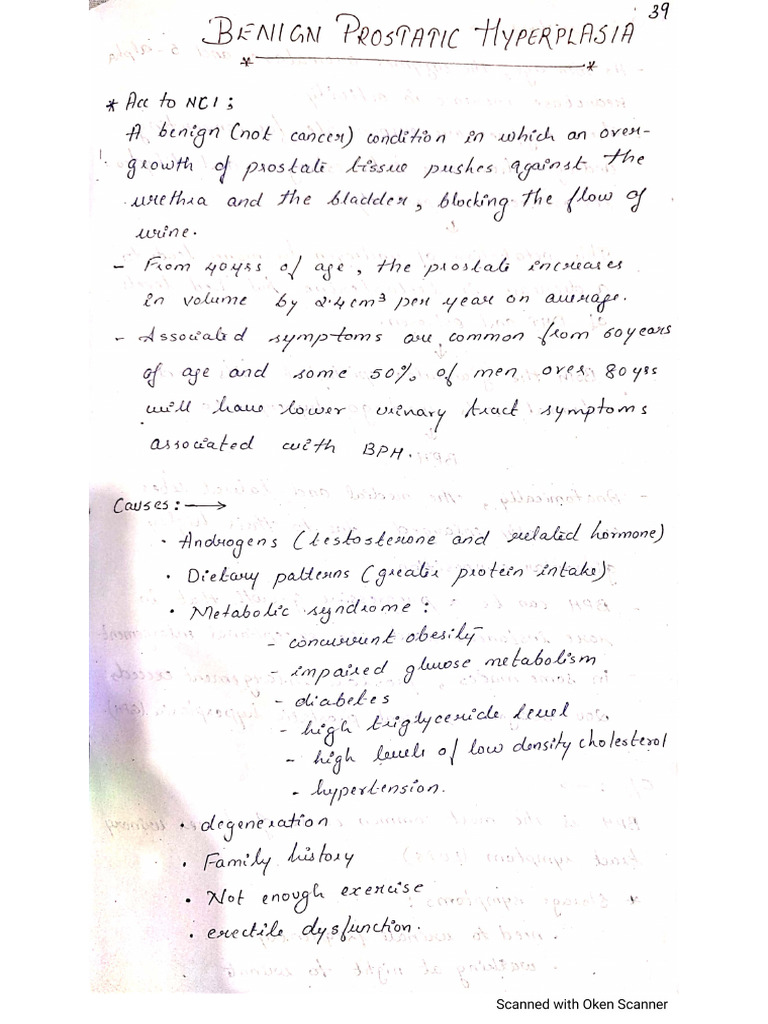 39
BENIGN PROSTATIC HYPERPLASIA
* Acc to NCI ;
A benign (not cancer) condition in which an over-
growth of prostate tissue pushes against the
urethra and the bladder, blocking the flow of
urine.
- From 40yrs of age, the prostate increases
in volume by 2.4cm³ per year on average.
- Associated symptoms are common from 60years
of age and some 50% of men over 80yrs
will have lower urinary tract symptoms
associated with BPH.
Causes : →
• Androgens (testosterone and related hormone)
• Dietary patterns (greater protein intake)
• Metabolic syndrome :
- concurrent obesity
- impaired glucose metabolism
- diabetes
- high triglyceride level
- high levels of low density cholesterol
- hypertension.
• degeneration
• Family history
• Not enough exercise
• erectile dysfunction.
Scanned with Oken Scanner